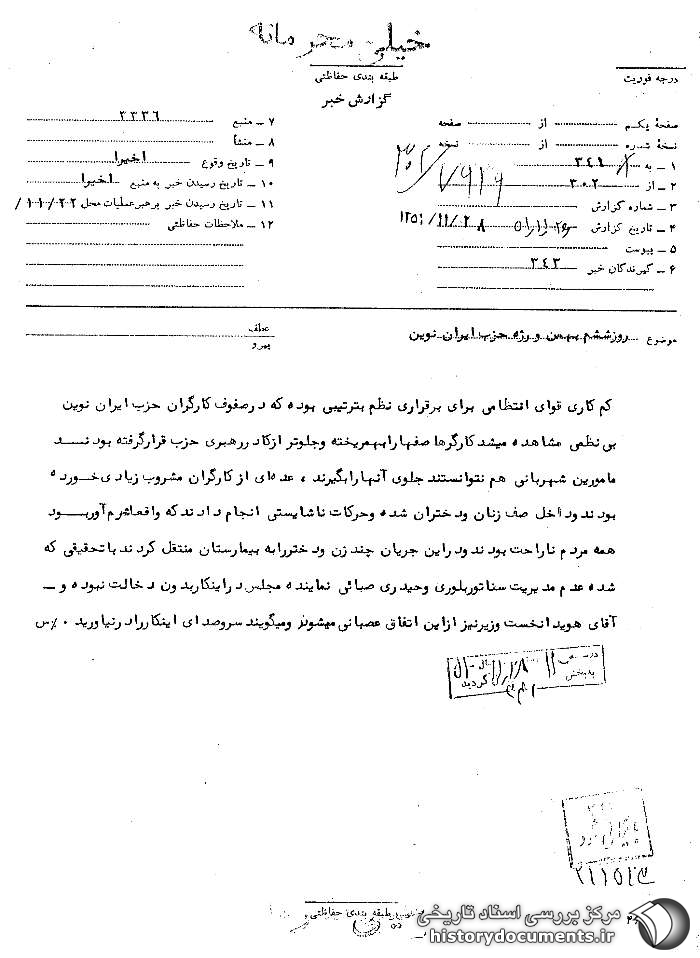 خیلی محرمانه
طبقه بندی حفاظتی
درجه فوریت
گزارش خبر
صفحهٔ یکم از صفحه
نسخهٔ شماره از نسخه
۱ ـ به ۳۴۱
۲ ـ از ۳۰۲
۳ ـ شماره گزارش
۴ ـ تاریخ گزارش ۱۳۵۱/۱۱/۲۸
۵ ـ پیوست
۶ ـ گیرندگان خبر ۳۴۳
۷ ـ منبع ۳۳۳۶
۸ ـ منشأ
۹ ـ تاریخ وقوع اخیرا
۱۰ ـ تاریخ رسیدن خبر به منبع اخیرا
۱۱ ـ تاریخ رسیدن خبر برهبر عملیات محل ۱۱/۲۲/
۱۲ ـ ملاحظات حفاظتی
موضوع روز ششم بهمن و رژه حزب ایران نوین
عطف
پیرو
کم کاری قوای انتظامی برای برقراری نظم بترتیبی بوده که در صفوف کارگران حزب ایران نوین
بی نظمی مشاهده میشد کارگرها صفها را بهم ریخته و جلوتر از کادر رهبری حزب قرار گرفته بودند
مامورین شهربانی هم نتوانستند جلوی آنها را بگیرند ، عده ای از کارگران مشروب زیادی خورده
بودند و داخل صف زنان و دختران شده و حرکات ناشایستی انجام دادند که واقعا شرم آور بود
همه مردم ناراحت بودند و در این جریان چند زن و دختر را به بیمارستان منتقل کردند با تحقیقی که
شده عدم مدیریت سناتور بلوری و حیدری صبائی نماینده مجلس در اینکار بدون دخالت نبوده و ـ
آقای هویدا نخست وزیر نیز از این اتفاق عصبانی میشوند و میگویند سر و صدای اینکار را در نیاورید
طبقه بندی حفاظتی
مرکز بررسی اسناد تاریخی
historydocuments.ir